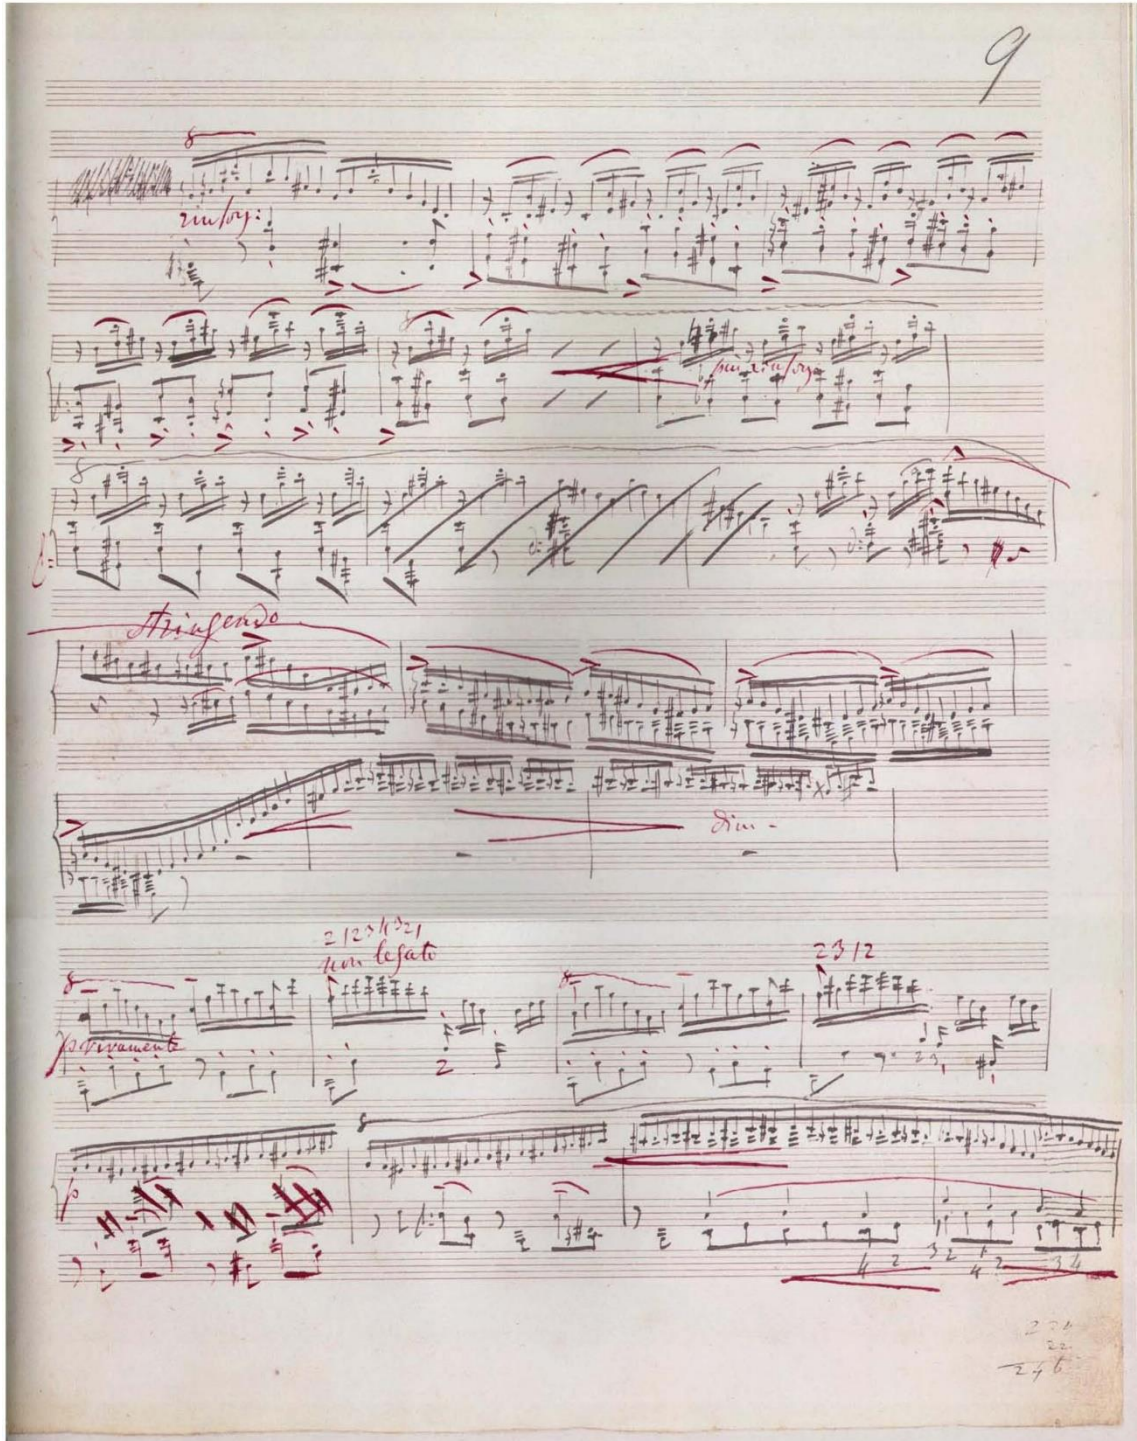 9
8
rinforz:
8
più rinforz
8
stringendo
dim -
2 1 2 3 4 3 2 1
non legato
2 3 1 2
8
8
p vivamente
2
2 3
8
p
4 2 3 2 4 1 2 3 4
22
246